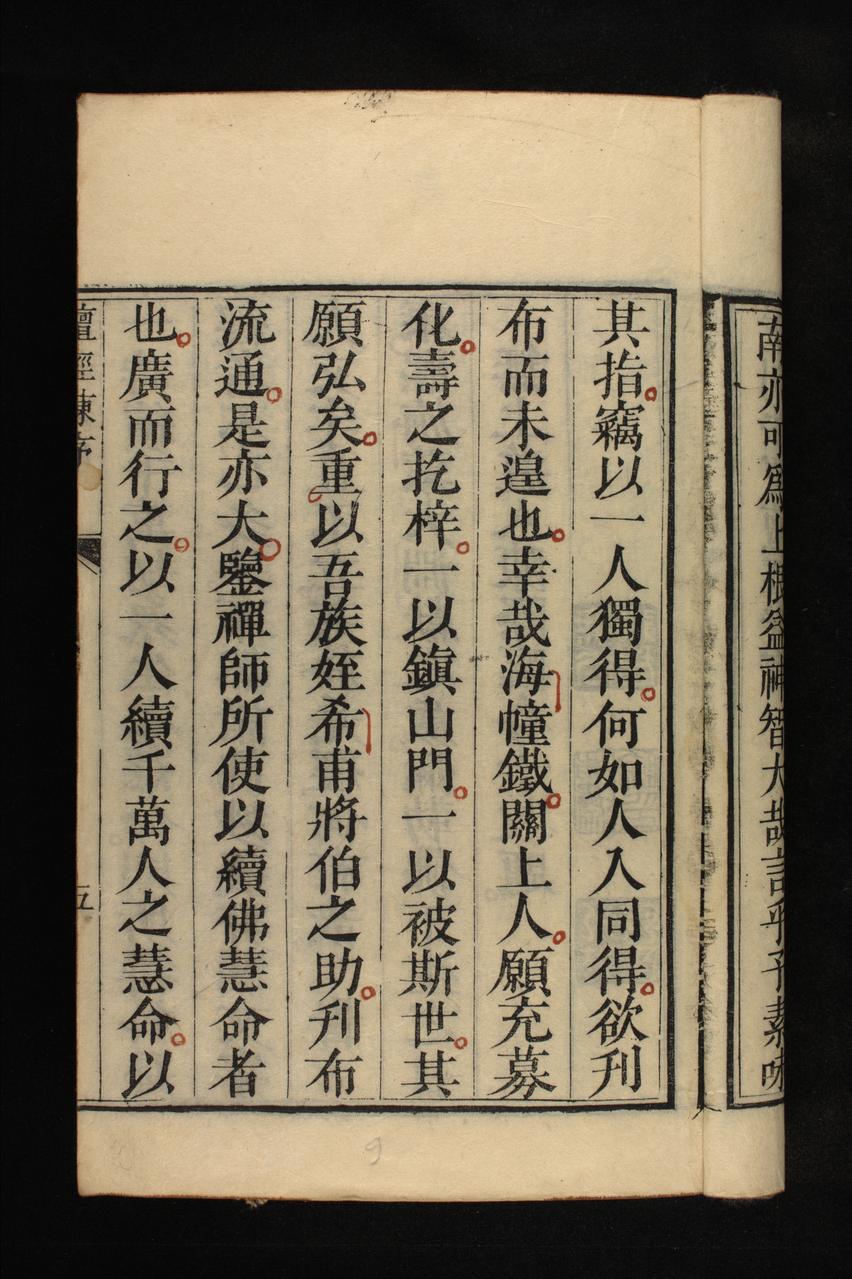 南亦可爲上根益神智大哉言乎予素味
其指竊以一人獨得何如人人同得欲刊
布而未遑也幸哉海幢鐵關上人願充募
化壽之扢梓一以鎮山門一以被斯世其
願弘矣重以吾族姪希甫將伯之助刊布
流通是亦大鑒禪師所使以續佛慧命者
也廣而行之以一人續千萬人之慧命以
壇經陳序 五